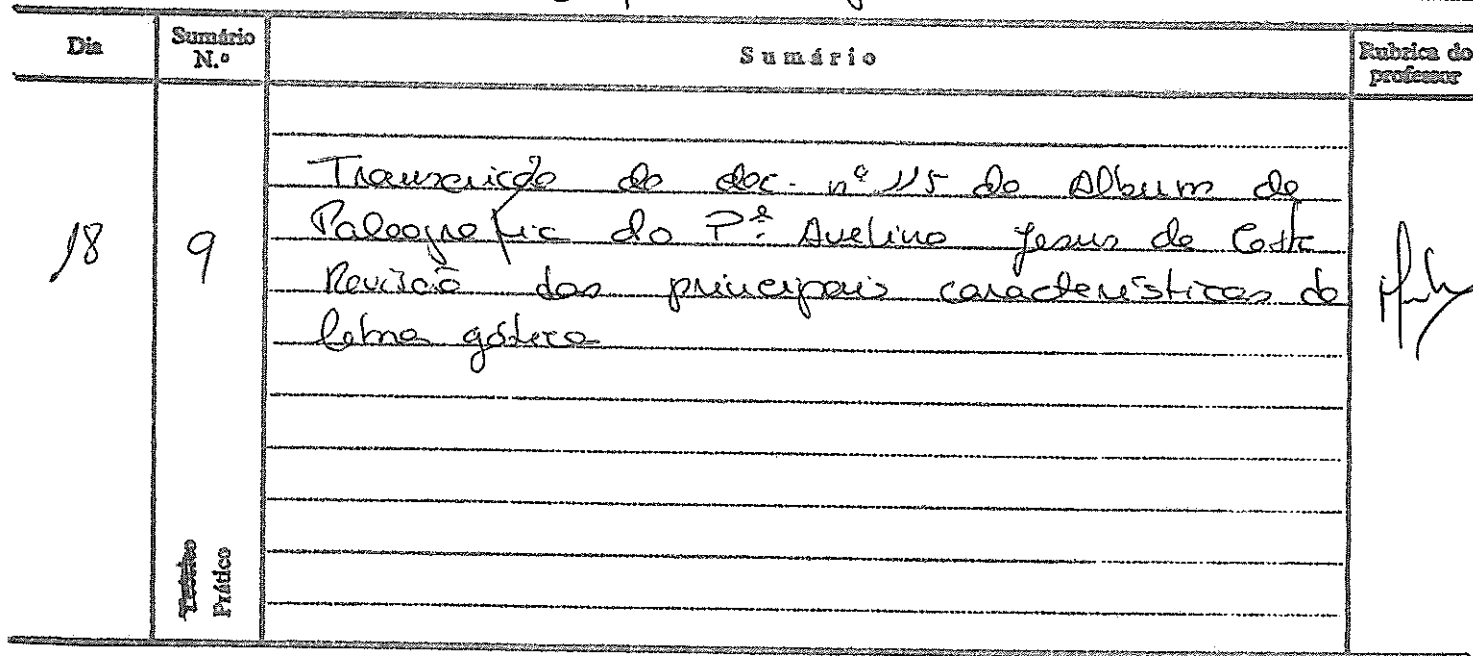 Dia Sumário N.º Sumário Rubrica do professor
18 9
Transcrição do doc. nº 115 do Album de
Paleografia do P.e Avelino Jesus da Costa
Revisão das principais características da
letra gótica
Teórico
Prático